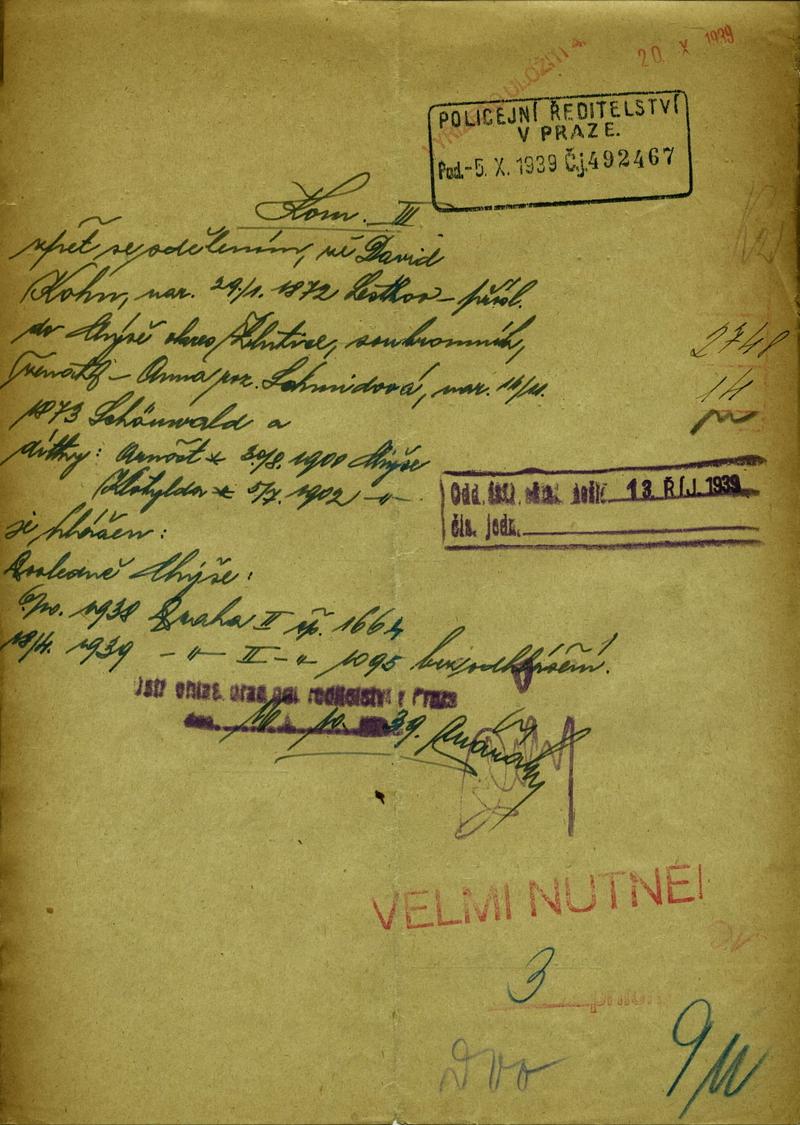 20. X 1939
POLICEJNÍ ŘEDITELSTVÍ
V PRAZE.
Pod.-5. X. 1939 Čj. 492467
Kom. III
zpět se sdělením, že David
Kohn, nar. 29/1. 1872 Lestkov - přísl.
do Chýše okres Žlutice, soukromník,
ženatý - Anna roz. Schmidová, nar.
1873 Schönwald a
dítky: Arnošt * 30/8. 1900 Chýše
Klotylda * 1902 -"-
je hlášen:
Posledně Chýše:
1938 Praha II čp. 1664
18/4. 1939 -"- II -"- 1095 bez odhlášení.
2748
14
13. ŘÍJ. 1939
čís. jedn.
ředitelství v Praze
10. 39.
VELMI NUTNÉ!
3